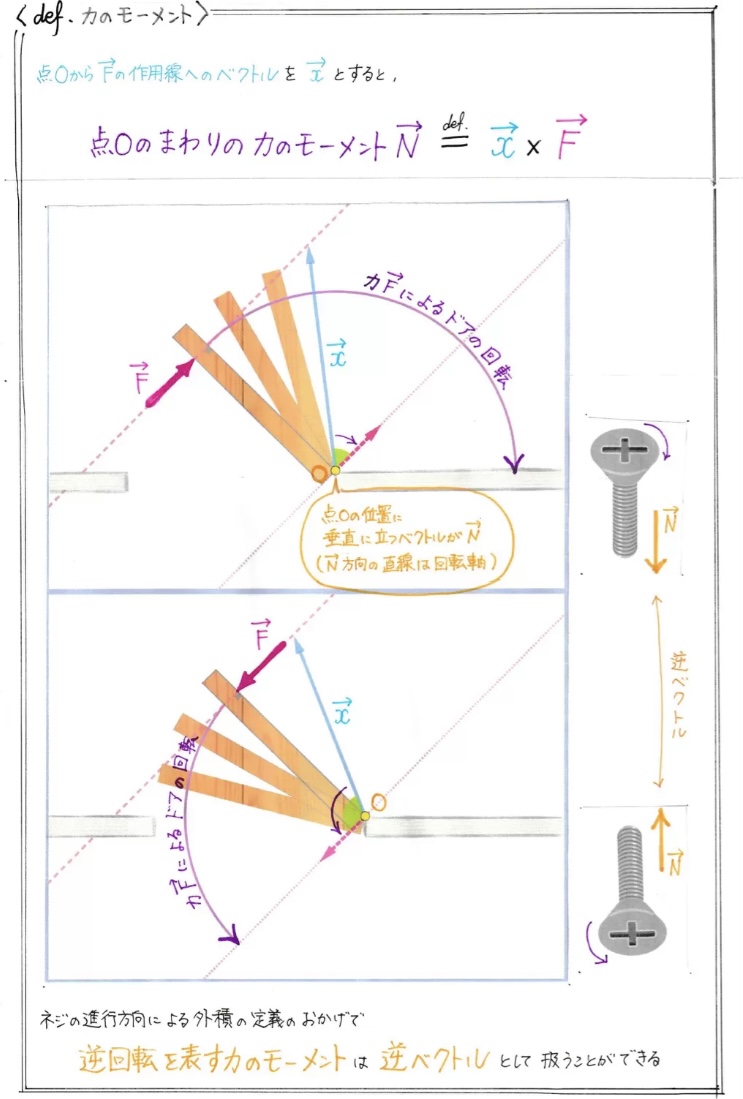 〈def. 力のモーメント〉
点Oから F→の作用線へのベクトルを x→ とすると,
点Oのまわりの 力のモーメント N→ def.= x→ × F→
力F→によるドアの回転
F→
x→
O
点Oの位置に
垂直に立つベクトルがN→
(N→方向の直線は回転軸)
N→
逆ベクトル
F→
x→
O
力F→によるドアの回転
N→
ネジの進行方向による外積の定義のおかげで
逆回転を表す力のモーメントは 逆ベクトル として 扱うことができる